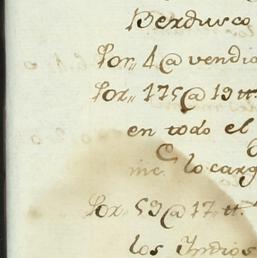 Perdusco
Por,, 4 @ vendio
Por,, 175 @ 19 tt.
en todo el
me lo carg
Por,, 59 @ 17,, tt.
los Indios